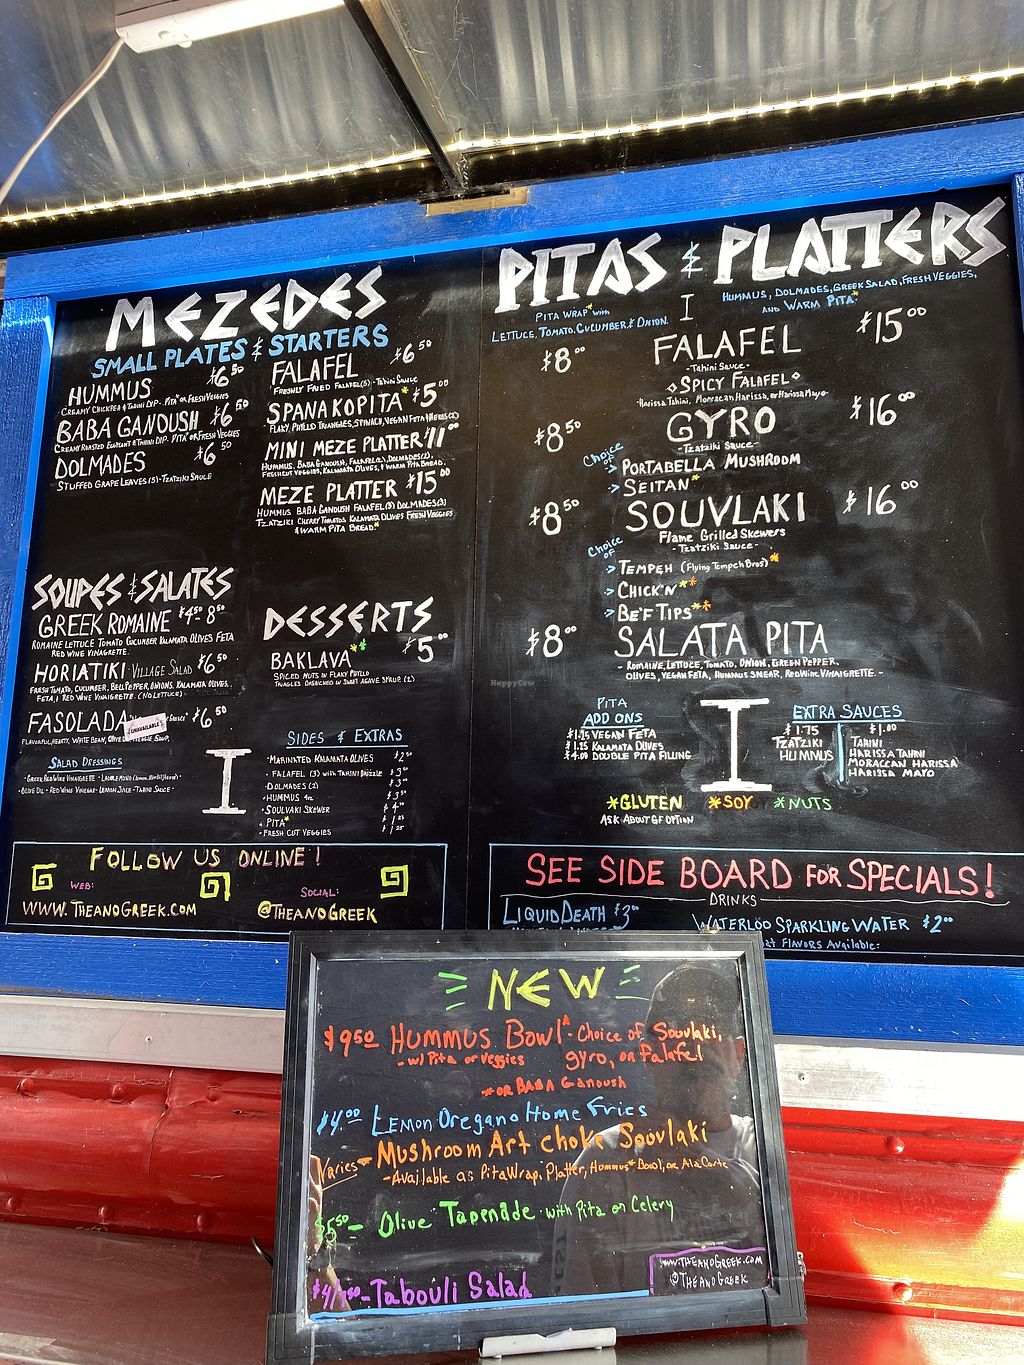 MEZEDES
SMALL PLATES & STARTERS
HUMMUS $6.50
CREAMY CHICKPEA & TAHINI DIP - PITA* OR FRESH VEGGIES
BABA GANOUSH $6.50
CREAMY ROASTED EGGPLANT & TAHINI DIP. PITA* OR FRESH VEGGIES
DOLMADES $6.50
STUFFED GRAPE LEAVES (5) - TZATZIKI SAUCE
FALAFEL $6.50
FRESHLY FRIED FALAFEL(5) - TAHINI SAUCE
SPANAKOPITA* $5.00
FLAKY, PHYLLO TRIANGLES, SPINACH, VEGAN FETA & HERBS (2)
MINI MEZE PLATTER $11.00
HUMMUS, BABA GANOUSH, FALAFEL(2), DOLMADES(2),
FRESH CUT VEGGIES, KALAMATA OLIVES, & WARM PITA BREAD.*
MEZE PLATTER $15.00
HUMMUS BABA GANOUSH FALAFEL(3) DOLMADES(3)
TZATZIKI CHERRY TOMATOES KALAMATA OLIVES FRESH VEGGIES
& WARM PITA BREAD.*
SOUPES & SALATES
GREEK ROMAINE $4.50 - 8.50
ROMAINE LETTUCE TOMATO CUCUMBER KALAMATA OLIVES FETA
RED WINE VINAIGRETTE.
HORIATIKI - VILLAGE SALAD $6.50
FRESH TOMATO, CUCUMBER, BELL PEPPER, ONIONS, KALAMATA OLIVES,
FETA, & RED WINE VINAIGRETTE. (NO LETTUCE)
FASOLADA $6.50
UNAVAILABLE
FLAVORFUL, HEARTY, WHITE BEAN, OLIVE VEGGIE SOUP.
SALAD DRESSINGS
- GREEK RED WINE VINAIGRETTE - LADOLEMONO
- OLIVE OIL - RED WINE VINEGAR - LEMON JUICE - TAHINI SAUCE -
DESSERTS
BAKLAVA** $5.00
SPICED NUTS IN FLAKY PHYLLO
TRIANGLES DRENCHED IN SWEET AGAVE SYRUP. (2)
SIDES & EXTRAS
· MARINATED KALAMATA OLIVES $2.00
· FALAFEL (3) WITH TAHINI DRIZZLE $3.00
· DOLMADES (2) $3.00
· HUMMUS 4oz $3.50
· SOUVLAKI SKEWER $4.00
· PITA* $1.25
· FRESH CUT VEGGIES $1.25
FOLLOW US ONLINE!
WEB:
WWW.THEANOGREEK.COM
SOCIAL:
@THEANOGREEK
PITAS & PLATTERS
PITA WRAP* with
LETTUCE, TOMATO, CUCUMBER & ONION.
HUMMUS, DOLMADES, GREEK SALAD, FRESH VEGGIES,
AND WARM PITA*
$8.00 FALAFEL $15.00
- Tahini Sauce -
◇SPICY FALAFEL◇
- Harissa Tahini, Moroccan Harissa, or Harissa Mayo -
$8.50 GYRO $16.00
- Tzatziki Sauce -
Choice of
> PORTABELLA MUSHROOM
> SEITAN*
$8.50 SOUVLAKI $16.00
Flame Grilled Skewers
- Tzatziki Sauce -
Choice of
> TEMPEH (Flying Tempeh Bros)*
> CHICK'N**
> BE'F TIPS**
$8.00 SALATA PITA
- ROMAINE, LETTUCE, TOMATO, ONION, GREEN PEPPER,
OLIVES, VEGAN FETA, HUMMUS SMEAR, RED WINE VINAIGRETTE. -
PITA
ADD ONS
$1.75 VEGAN FETA
$1.75 KALAMATA OLIVES
$4.00 DOUBLE PITA FILLING
EXTRA SAUCES
$1.75
TZATZIKI
HUMMUS
$1.00
TAHINI
HARISSA TAHINI
MOROCCAN HARISSA
HARISSA MAYO
*GLUTEN *SOY *NUTS
ASK ABOUT GF OPTION
SEE SIDE BOARD FOR SPECIALS!
DRINKS
LIQUID DEATH $3.00
WATERLOO SPARKLING WATER $2.00
FLAVORS AVAILABLE:
NEW
$9.50 HUMMUS BOWL - Choice of Souvlaki,
- w/ Pita or veggies gyro, or falafel
* OR BABA Ganoush
$4.00 LEMON Oregano Home Fries
Varies - Mushroom Artichoke Souvlaki
- Available as Pita Wrap, Platter, Hummus* Bowl, or Ala Carte
$5.50 - Olive Tapenade with Pita or Celery
Tabouli Salad
www.THEANOGREEK.COM
@THEANOGREEK
HappyCow